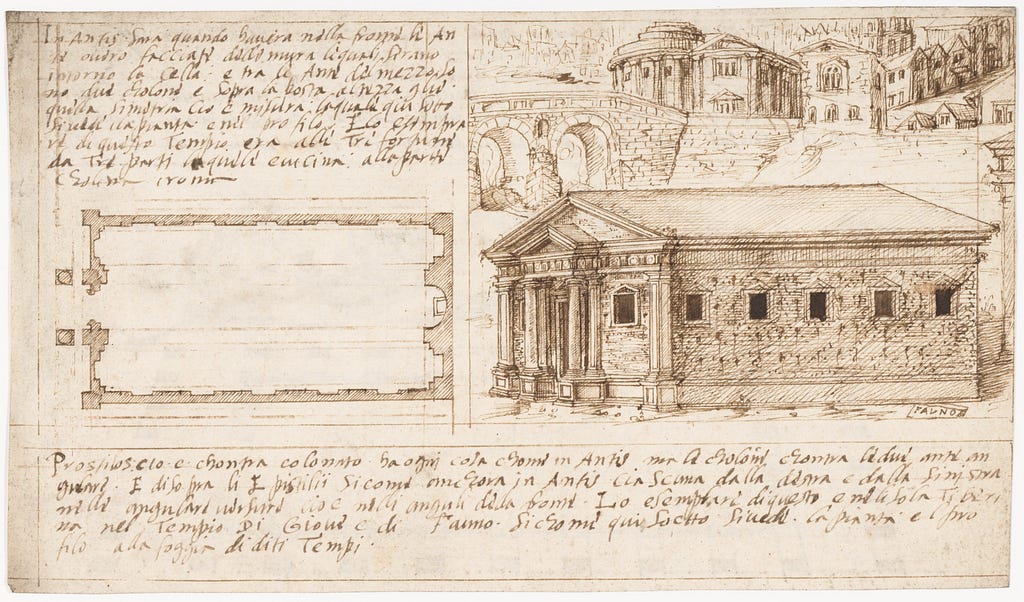 In Antis. Sara quando havera nella fronte le An
te overo facciate delle mura le quali serano
intorno la Cella: e tra le Ante del mezzo
no due cholone e sopra la posta altezza
quella simetria cio e misura laquale qui sotto
si vede la pianta e nel profilo. Lo esempla
re di questo Tempio era alle Tre fortune
da Tre parti le quelle e vicina: alla parte
Cholina
FAVNO
Prostilos. cto. e. chontra colonato. ha ogni cosa chome in Antis. ma le cholone chontra le due ante an
gulare. E di sopra li E pistilii Si come anchora in Antis Ciascuna dalla. destra e dalla Sinistra
nelle angulare versure cioe nelli anguli della fronte. Lo esemplare di questo e nelisola Tiberi
na nel Tempio Di Giove e di Fauno. Si chome qui Soetto Sivede. la pianta e l pro
filo alla foggia di diti Tempi.